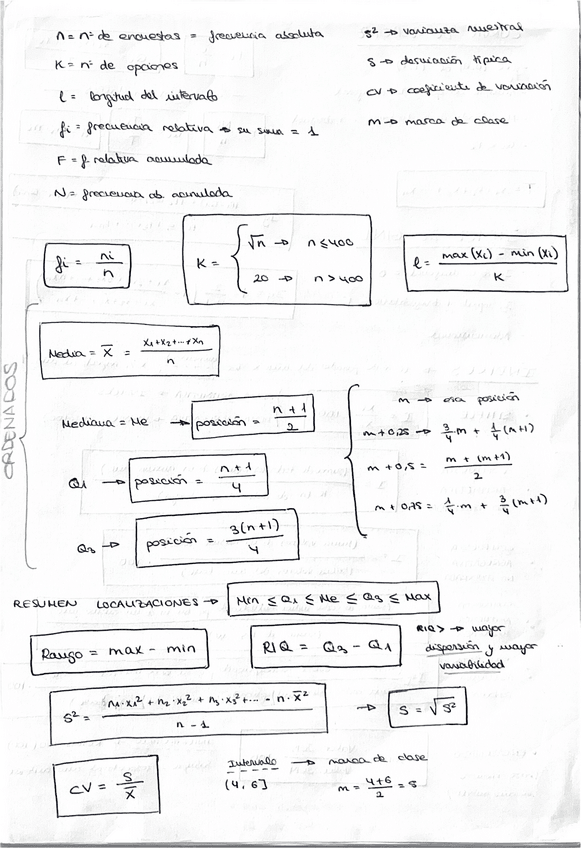 n = nº de encuestas = frecuencia absoluta
K = nº de opciones
l = longitud del intervalo
fi = frecuencia relativa → su suma = 1
F = f relativa acumulada
N = frecuencia ab. acumulada
s² → varianza muestral
s → desviación típica
CV → coeficiente de variación
m → marca de clase
fi = ni / n
K = { √n → n ≤ 400
20 → n > 400
l = max (xi) - min (xi) / K
ORDENADOS
Media = x̄ = x1 + x2 + ... + xn / n
Mediana = Me → posición = n + 1 / 2
Q1 → posición = n + 1 / 4
Q3 → posición = 3(n+1) / 4
m → esa posición
m + 0,25 → 3/4 · m + 1/4 (m+1)
m + 0,5 = m + (m+1) / 2
m + 0,75 = 1/4 · m + 3/4 (m+1)
RESUMEN LOCALIZACIONES → Min ≤ Q1 ≤ Me ≤ Q3 ≤ Max
Rango = max - min
RIQ = Q3 - Q1
RIQ > → mayor
dispersión y mayor
variabilidad
S² = n1 · x1² + n2 · x2² + n3 · x3² + ... - n · x̄² / n - 1
→ S = √S²
CV = S / x̄
Intervalo → marca de clase
(4, 6] m = 4+6 / 2 = 5